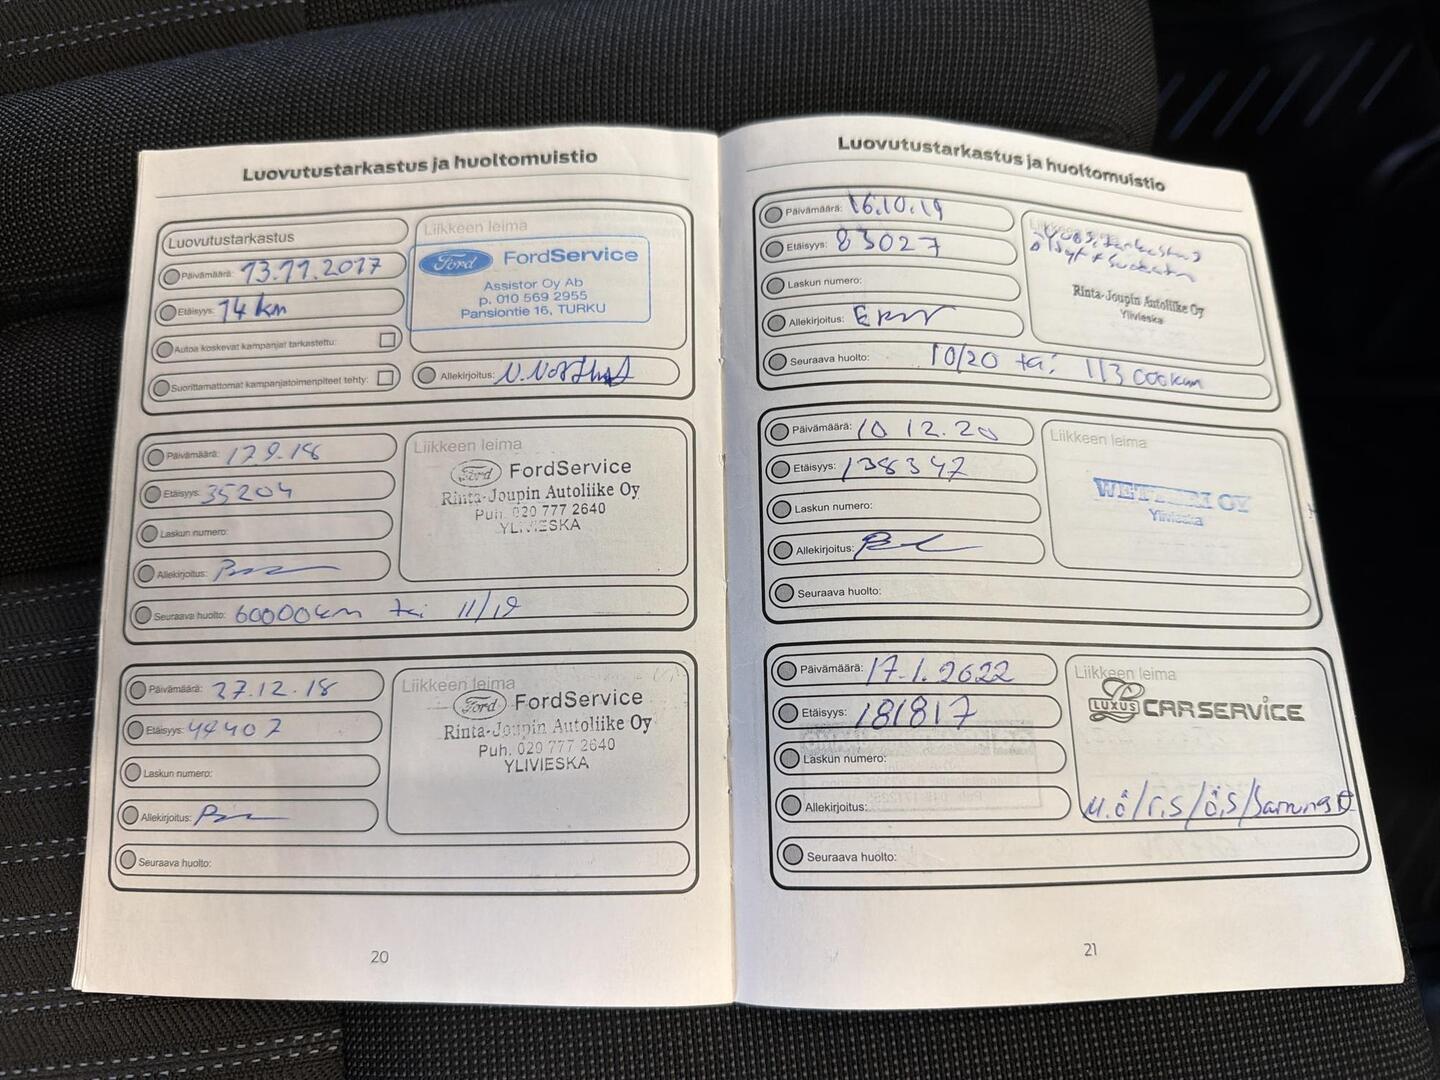 Luovutustarkastus ja huoltomuistio
Luovutustarkastus
Päivämäärä: 13.11.2017
Etäisyys: 14 km
Autoa koskevat kampanjat tarkastettu:
Suorittamattomat kampanjatoimenpiteet tehty:
Liikkeen leima
Ford FordService
Assistor Oy Ab
p. 010 569 2955
Pansiontie 16, TURKU
Allekirjoitus:
Päivämäärä: 17.9.18
Etäisyys: 35204
Laskun numero:
Allekirjoitus:
Liikkeen leima
Ford FordService
Rinta-Joupin Autoliike Oy
Puh. 020 777 2640
YLIVIESKA
Seuraava huolto: 60000km tai 11/19
Päivämäärä: 27.12.18
Etäisyys: 49407
Laskun numero:
Allekirjoitus:
Liikkeen leima
Ford FordService
Rinta-Joupin Autoliike Oy
Puh. 020 777 2640
YLIVIESKA
Seuraava huolto:
20
Luovutustarkastus ja huoltomuistio
Päivämäärä: 16.10.19
Etäisyys: 83027
Laskun numero:
Allekirjoitus:
Liikkeen leima
Rinta-Joupin Autoliike Oy
Ylivieska
Seuraava huolto: 10/20 tai 113 000km
Päivämäärä: 10 12.20
Etäisyys: 138347
Laskun numero:
Allekirjoitus:
Liikkeen leima
OY
Ylivieska
Seuraava huolto:
Päivämäärä: 17.1.2022
Etäisyys: 181817
Laskun numero:
Allekirjoitus:
Liikkeen leima
LUXUS CARSERVICE
M.ö/r,s/ö,s/
Seuraava huolto:
21